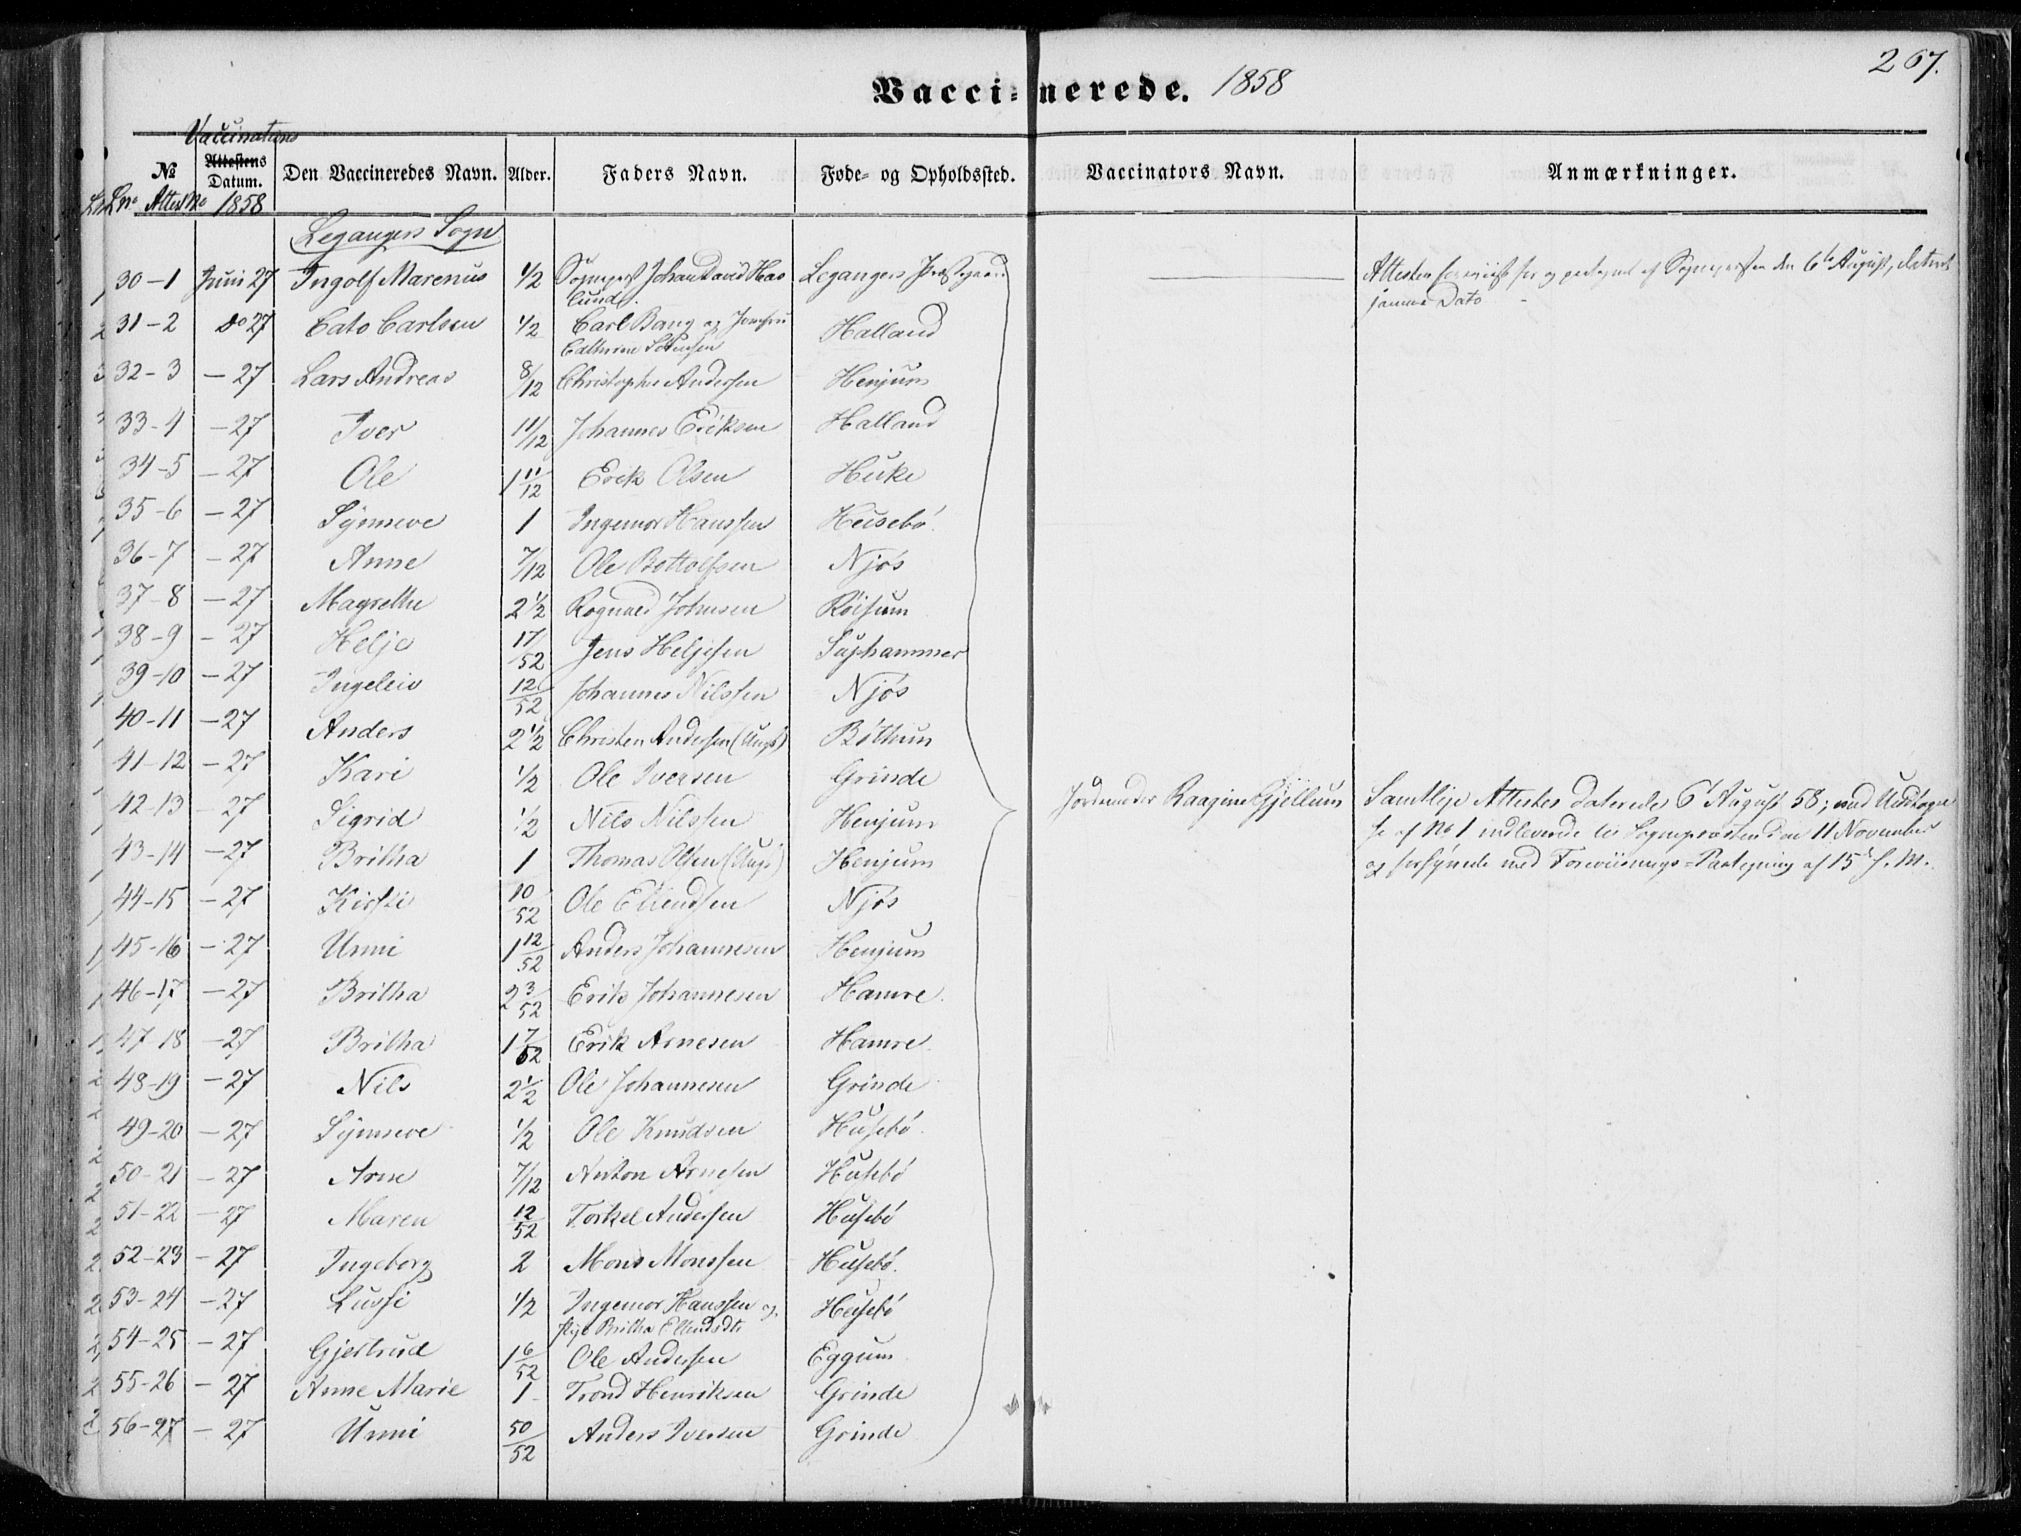 267.
Vaccinerede. 1858
Vaccinations
No Attestens Datum. Den Vaccineredes Navn. Alder. Faders Navn. Føde- og Opholdssted. Vaccinators Navn. Anmærkninger.
Lno Attest No 1858
Leganger Sogn
30-1 Juni 27 Ingolf Marenius 1/2 Sognepst Johan David Has Leganger Præstegaard
lund.
Attesten foreviist for og paategnet af Sognepresten den 6te August, dateret
samme Dato
31-2 do 27 Cato Carlsen 1/2 Carl Bang og Jomfru Halland
Cathrine Sørensen
32-3 - 27 Lars Andreas 8/12 Christopher Andersen Henjum
33-4 - 27 Iver 11/12 Johannes Eriksen Halland
34-5 - 27 Ole 1 11/12 Erik Olsen Huke
35-6 - 27 Synneve 1 Ingemor Hanssen Husebø
36-7 - 27 Anne 7/12 Ole Bottolfsen Njøs
37-8 - 27 Magrethe 2 1/2 Rognald Johnsen Røisum
38-9 - 27 Helje 17/52 Jens Heljesen Suphammer
39-10 - 27 Ingeleiv 12/52 Johannes Nilssen Njøs
40-11 - 27 Anders 2 1/2 Christen Andersen (Ungk) Bøthun
41-12 - 27 Kari 1/2 Ole Iversen Grinde
42-13 - 27 Sigrid 1/2 Nils Nilssen Henjum
Jordmoder Raagine Gjellum
Samtlige Attester daterede 6t August 58; med Undtagel
se af No 1 indleverede til Sognepresten den 11 November
og forsynede med Foreviisnings-Paategning af 15d s. M.
43-14 - 27 Britha 1 Thomas Olsen (Ungk) Henjum
44-15 - 27 Kirsti 10/52 Ole Ellendsen Njøs
45-16 - 27 Unni 1 12/52 Anders Johannesen Henjum
46-17 - 27 Britha 2 3/52 Erik Johannesen Hamre
47-18 - 27 Britha 1 7/52 Erik Arnesen Hamre
48-19 - 27 Nils 2 1/2 Ole Johannesen Grinde
49-20 - 27 Synneve 1/2 Ole Knudsen Husebø
50-21 - 27 Arne 7/12 Anton Arnesen Husebø
51-22 - 27 Maren 12/52 Torkel Andersen Husebø
52-23 - 27 Ingeborg 2 Mons Monssen Husebø
53-24 - 27 Lussi 1/2 Ingemor Hanssen og Husebø
Britha Ellendsdtr
54-25 - 27 Gjertrud 1 6/52 Ole Andersen Eggum
55-26 - 27 Anne Marie 1 Trond Henriksen Grinde
56-27 - 27 Unni 50/52 Anders Iversen Grinde